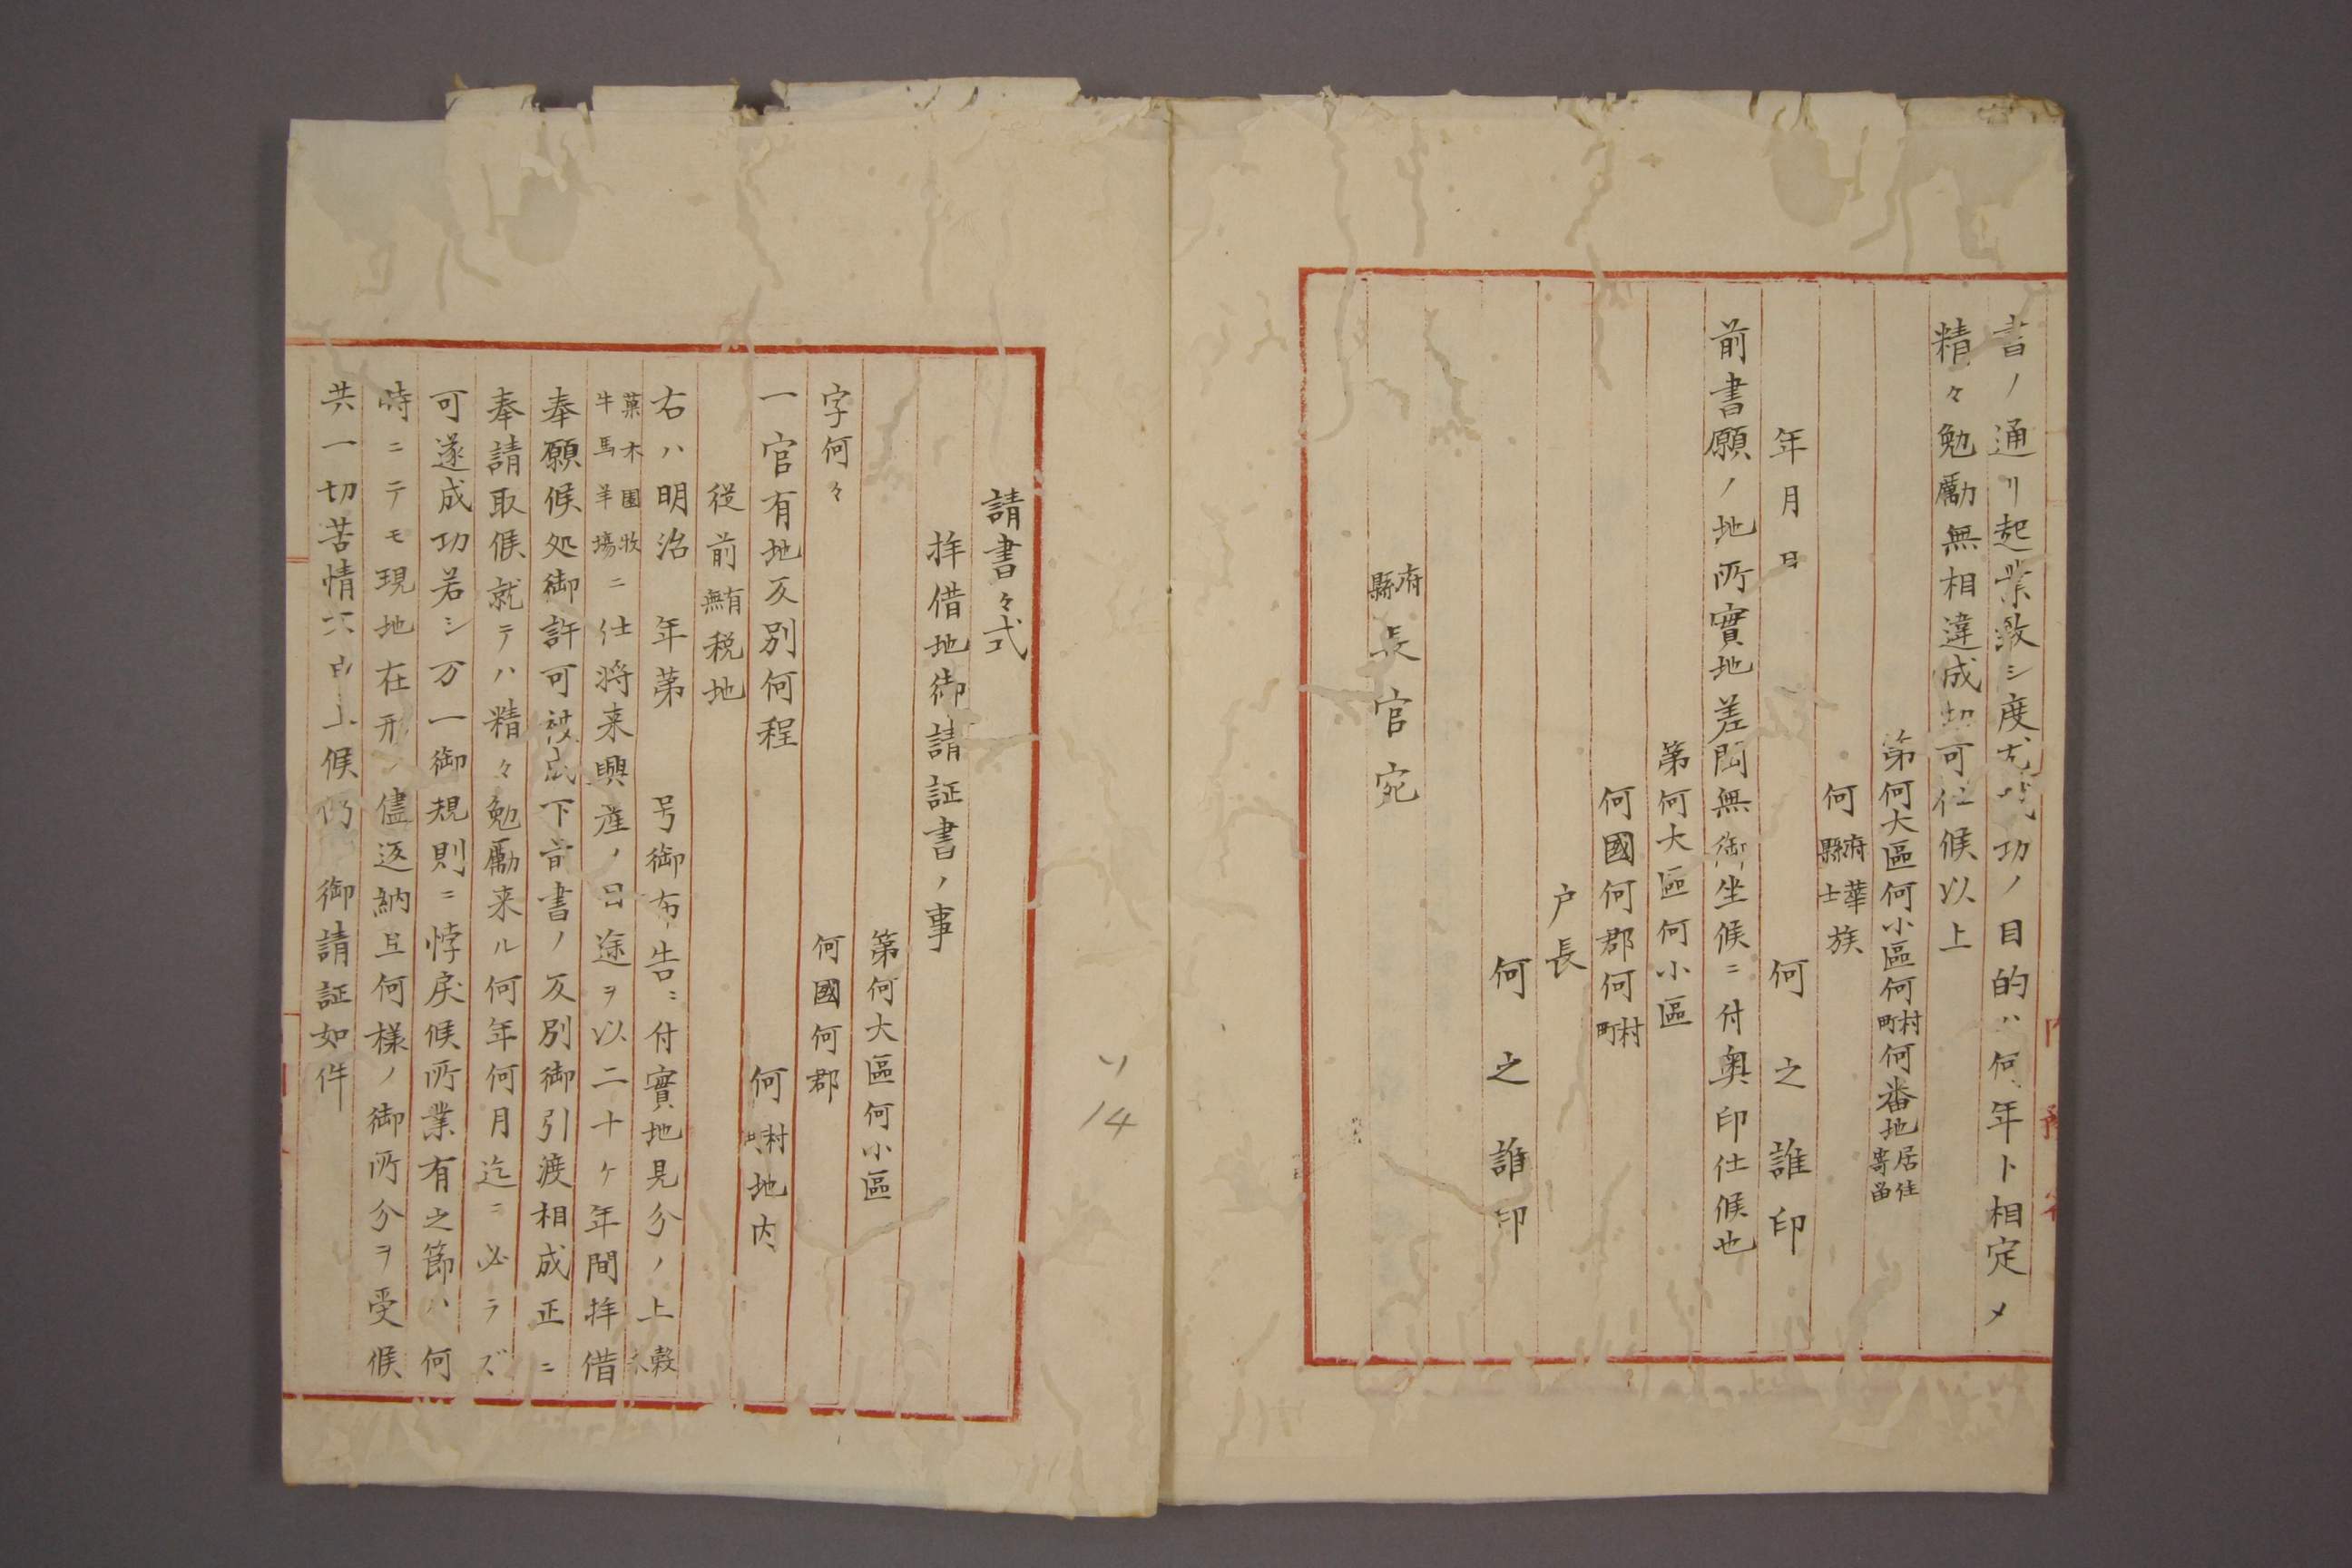 書ノ通リ起業致シ度尤成功ノ目的ハ何年ト相定メ
精々勉励無相違成功可仕候以上
第何大區何小區何村町何番地居住寄留
何府縣華士族
年月日 何之誰印
前書願ノ地所實地差閊無御坐候ニ付奥印仕候也
第何大區何小區
何國何郡何村町
戸長
何之誰印
府縣長官宛
請書々式
拝借地御請証書ノ事
第何大區何小區
字何々 何國何郡
一官有地反別何程 何村町地内
従前有無税地
右ハ明治 年第 号御布告ニ付實地見分ノ上穀
菓木園牧牛馬羊場ニ仕将来興産ノ目途ヲ以二十ケ年間拝借
奉願候処御許可被成下書ノ反別御引渡相成正ニ
奉請取候就テハ精々勉励来ル何年何月迄ニ必ラズ
可遂成功若シ万一御規則ニ悖戻候所業有之節ハ何
時ニテモ現地在形ノ儘返納且何様ノ御所分ヲ受候
共一切苦情 上候仍 御請証如件
ソ
14